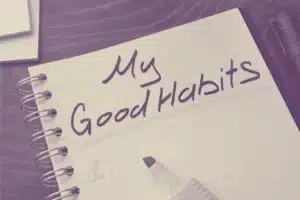 My
Good Habits